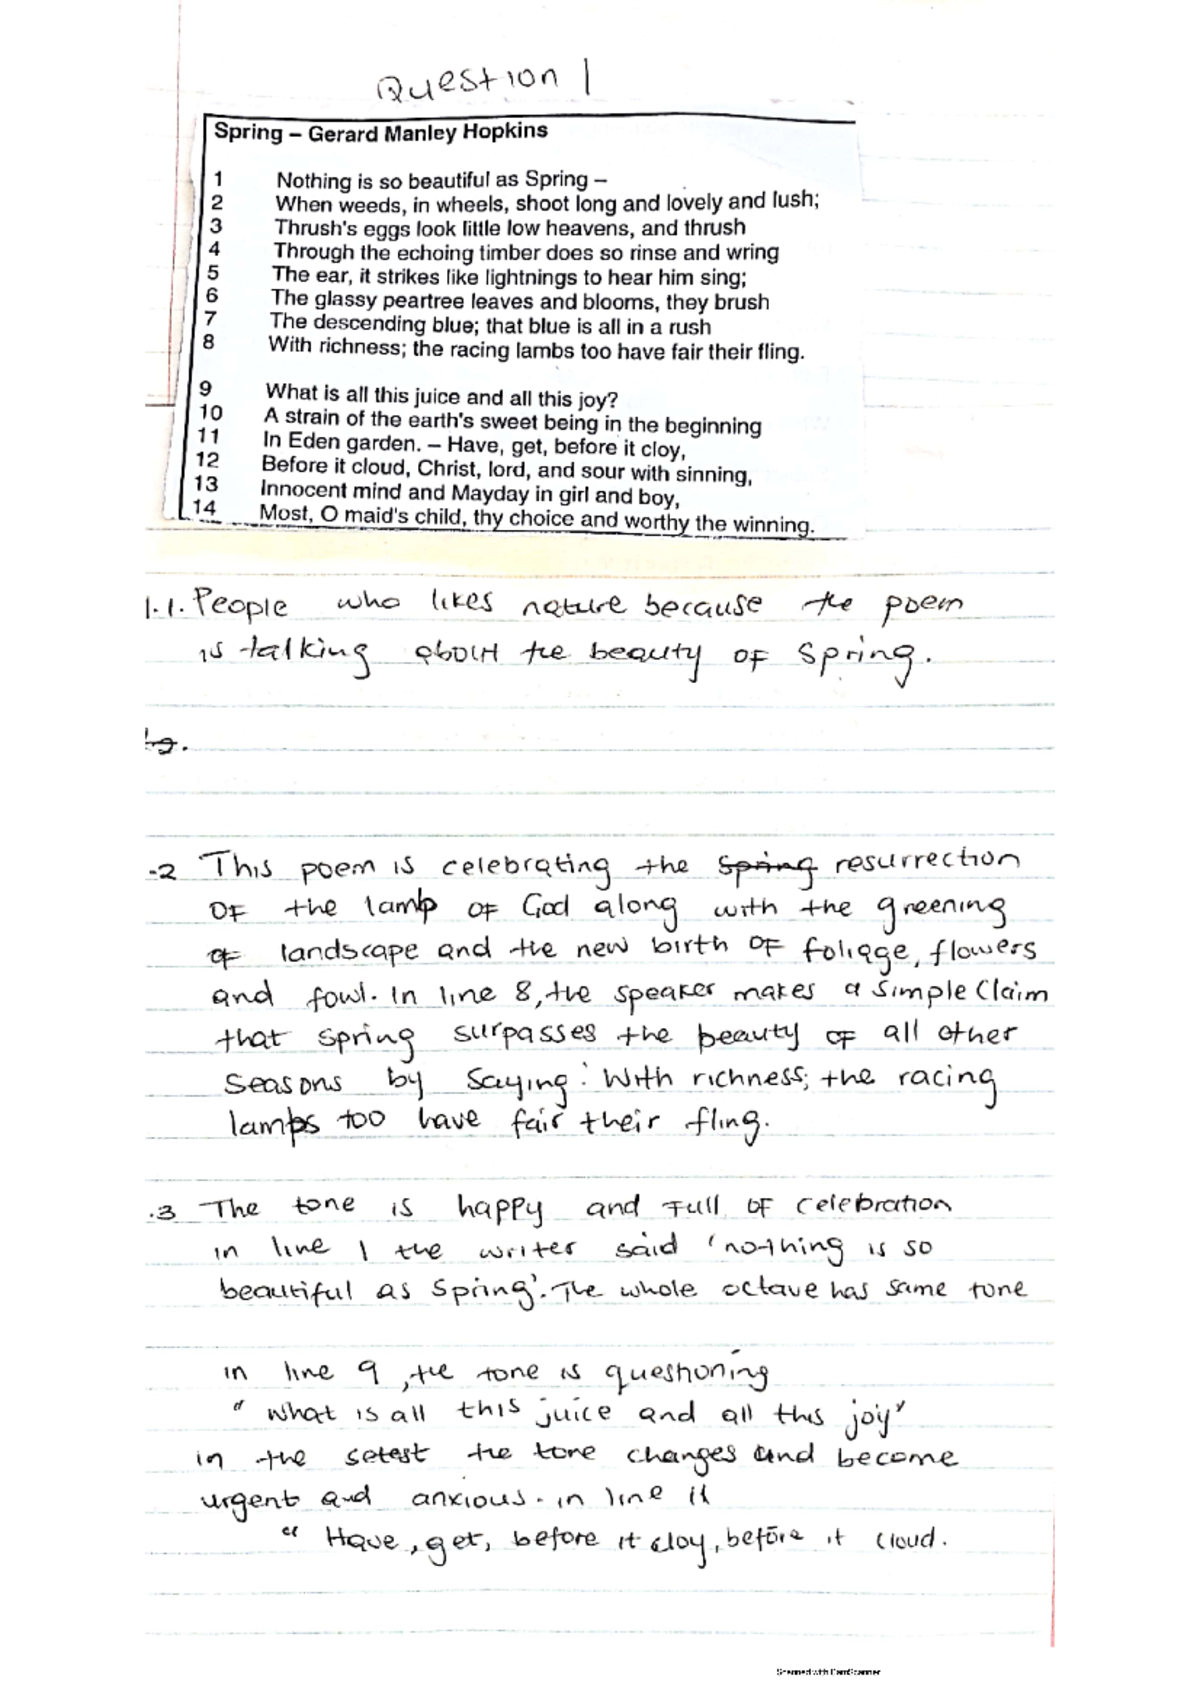 Question 1
Spring – Gerard Manley Hopkins
1 Nothing is so beautiful as Spring –
2 When weeds, in wheels, shoot long and lovely and lush;
3 Thrush's eggs look little low heavens, and thrush
4 Through the echoing timber does so rinse and wring
5 The ear, it strikes like lightnings to hear him sing;
6 The glassy peartree leaves and blooms, they brush
7 The descending blue; that blue is all in a rush
8 With richness; the racing lambs too have fair their fling.
9 What is all this juice and all this joy?
10 A strain of the earth's sweet being in the beginning
11 In Eden garden. – Have, get, before it cloy,
12 Before it cloud, Christ, lord, and sour with sinning,
13 Innocent mind and Mayday in girl and boy,
14 Most, O maid's child, thy choice and worthy the winning.
1.1. People who likes nature because the poem
is talking about the beauty of spring.
.2 This poem is celebrating the spring resurrection
of the lamb of God along with the greening
of landscape and the new birth of foliage, flowers
and fowl. In line 8, the speaker makes a simple claim
that spring surpasses the beauty of all other
seasons by saying: With richness; the racing
lambs too have fair their fling.
.3 The tone is happy and full of celebration
in line 1 the writer said 'nothing is so
beautiful as spring'. The whole octave has same tone
in line 9, the tone is questioning
" what is all this juice and all this joy"
in the setest the tone changes and become
urgent and anxious. in line 11
" Have, get, before it cloy, before it cloud.
Scanned with CamScanner